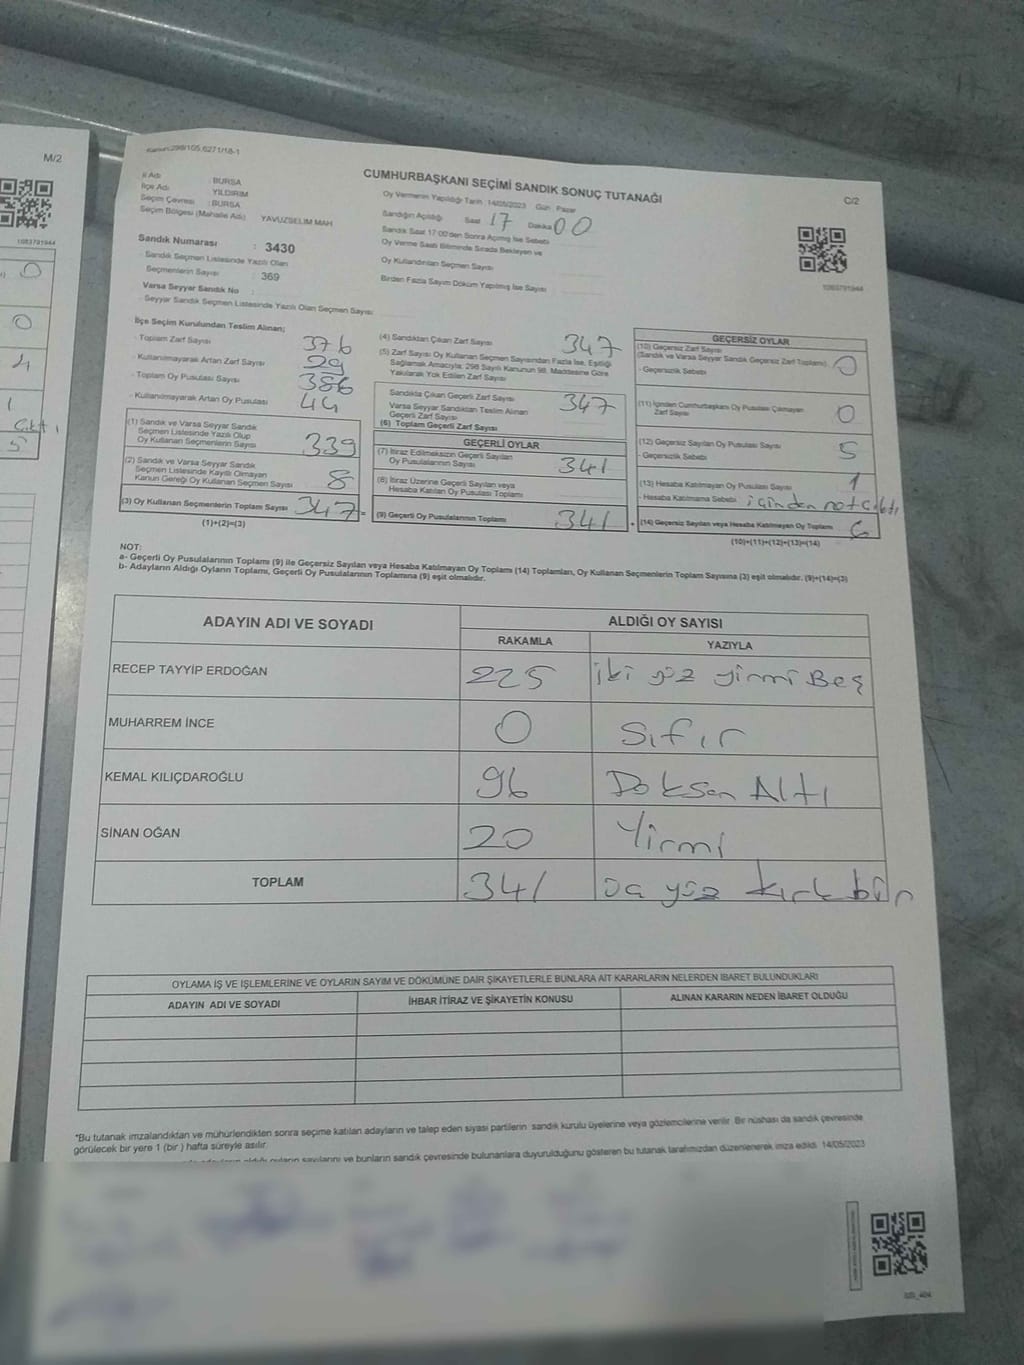 M/2
1083791944
0
0
4
1
5
Kanun:298/105.6271/18-1
CUMHURBAŞKANI SEÇİMİ SANDIK SONUÇ TUTANAĞI
C/2
İl Adı : BURSA
İlçe Adı YILDIRIM
Seçim Çevresi : BURSA
Seçim Bölgesi (Mahalle Adı) YAVUZSELIM MAH
Oy Vermenin Yapıldığı Tarih : 14/05/2023 Gün : Pazar
Sandığın Açıldığı Saat 17 Dakika 00
Sandık Saat 17:00'den Sonra Açılmış İse Sebebi
Oy Verme Saati Bitiminde Sırada Bekleyen ve
Oy Kullandırılan Seçmen Sayısı
Birden Fazla Sayım Döküm Yapılmış İse Sayısı
1083791944
Sandık Numarası : 3430
Sandık Seçmen Listesinde Yazılı Olan
Seçmenlerin Sayısı : 369
Varsa Seyyar Sandık No :
- Seyyar Sandık Seçmen Listesinde Yazılı Olan Seçmen Sayısı:
İlçe Seçim Kurulundan Teslim Alınan;
- Toplam Zarf Sayısı 376
- Kullanılmayarak Artan Zarf Sayısı 29
- Toplam Oy Pusulası Sayısı 386
- Kullanılmayarak Artan Oy Pusulası 44
(1) Sandık ve Varsa Seyyar Sandık
Seçmen Listesinde Yazılı Olup
Oy Kullanan Seçmenlerin Sayısı 339
(2) Sandık ve Varsa Seyyar Sandık
Seçmen Listesinde Kayıtlı Olmayan
Kanun Gereği Oy Kullanan Seçmen Sayısı 8
(3) Oy Kullanan Seçmenlerin Toplam Sayısı 347 =
(1)+(2)=(3)
(4) Sandıktan Çıkan Zarf Sayısı 347
(5) Zarf Sayısı Oy Kullanan Seçmen Sayısından Fazla İse, Eşitliği
Sağlamak Amacıyla; 298 Sayılı Kanunun 98. Maddesine Göre
Yakılarak Yok Edilen Zarf Sayısı
Sandıkta Çıkan Geçerli Zarf Sayısı 347
Varsa Seyyar Sandıktan Teslim Alınan
Geçerli Zarf Sayısı
(6) Toplam Geçerli Zarf Sayısı
GEÇERLİ OYLAR
(7) İtiraz Edilmeksizin Geçerli Sayılan
Oy Pusulalarının Sayısı 341
(8) İtiraz Üzerine Geçerli Sayılan veya
Hesaba Katılan Oy Pusulası Toplamı
(9) Geçerli Oy Pusulalarının Toplamı 341 +
GEÇERSİZ OYLAR
(10) Geçersiz Zarf Sayısı
(Sandık ve Varsa Seyyar Sandık Geçersiz Zarf Toplamı) 0
- Geçersizlik Sebebi
(11) İçinden Cumhurbaşkanı Oy Pusulası Çıkmayan
Zarf Sayısı 0
(12) Geçersiz Sayılan Oy Pusulası Sayısı 5
- Geçersizlik Sebebi
(13) Hesaba Katılmayan Oy Pusulası Sayısı 1
- Hesaba Katılmama Sebebi içinden not çıktı
(14) Geçersiz Sayılan veya Hesaba Katılmayan Oy Toplamı 6
(10)+(11)+(12)+(13)=(14)
NOT:
a- Geçerli Oy Pusulalarının Toplamı (9) ile Geçersiz Sayılan veya Hesaba Katılmayan Oy Toplamı (14) Toplamları, Oy Kullanan Seçmenlerin Toplam Sayısına (3) eşit olmalıdır. (9)+(14)=(3)
b- Adayların Aldığı Oyların Toplamı, Geçerli Oy Pusulalarının Toplamına (9) eşit olmalıdır.
ADAYIN ADI VE SOYADI
ALDIĞI OY SAYISI
RAKAMLA YAZIYLA
RECEP TAYYİP ERDOĞAN 225 iki yüz yirmi Beş
MUHARREM İNCE 0 Sıfır
KEMAL KILIÇDAROĞLU 96 Doksan Altı
SİNAN OĞAN 20 Yirmi
TOPLAM 341 üç yüz kırk bir
OYLAMA İŞ VE İŞLEMLERİNE VE OYLARIN SAYIM VE DÖKÜMÜNE DAİR ŞİKAYETLERLE BUNLARA AİT KARARLARIN NELERDEN İBARET BULUNDUKLARI
ADAYIN ADI VE SOYADI İHBAR İTİRAZ VE ŞİKAYETİN KONUSU ALINAN KARARIN NEDEN İBARET OLDUĞU
*Bu tutanak imzalandıktan ve mühürlendikten sonra seçime katılan adayların ve talep eden siyasi partilerin sandık kurulu üyelerine veya gözlemcilerine verilir. Bir nüshası da sandık çevresinde
görülecek bir yere 1 (bir) hafta süreyle asılır.
aldığı oyların sayılarını ve bunların sandık çevresinde bulunanlara duyurulduğunu gösteren bu tutanak tarafımızdan düzenlenerek imza edildi. 14/05/2023